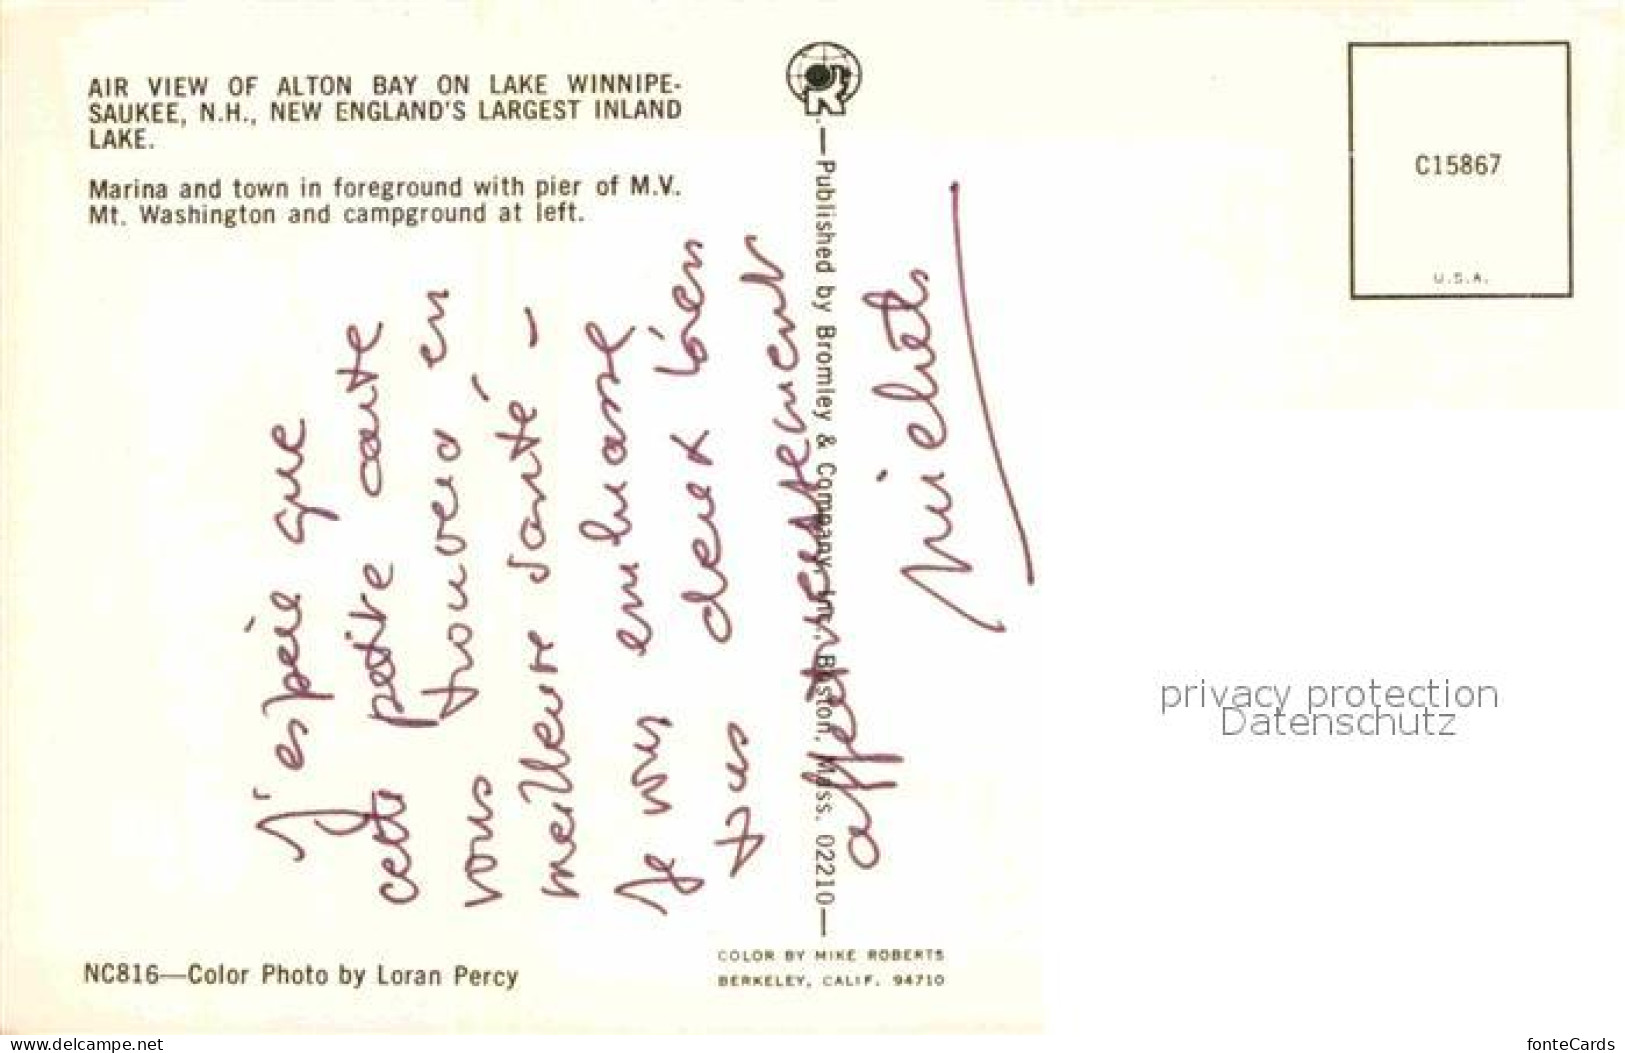 AIR VIEW OF ALTON BAY ON LAKE WINNIPE-
SAUKEE, N.H., NEW ENGLAND'S LARGEST INLAND
LAKE.
Marina and town in foreground with pier of M.V.
Mt. Washington and campground at left.
J'espère que
cette petite carte
vous trouvera en
meilleure santé -
Je vous embrasse
tous deux bien
affectueusement
—Published by Bromley & Company, Inc., Boston, Mass. 02210—
C15867
U.S.A.
privacy protection
Datenschutz
NC816—Color Photo by Loran Percy
COLOR BY MIKE ROBERTS
BERKELEY, CALIF. 94710
www.delcampe.net
fonteCards